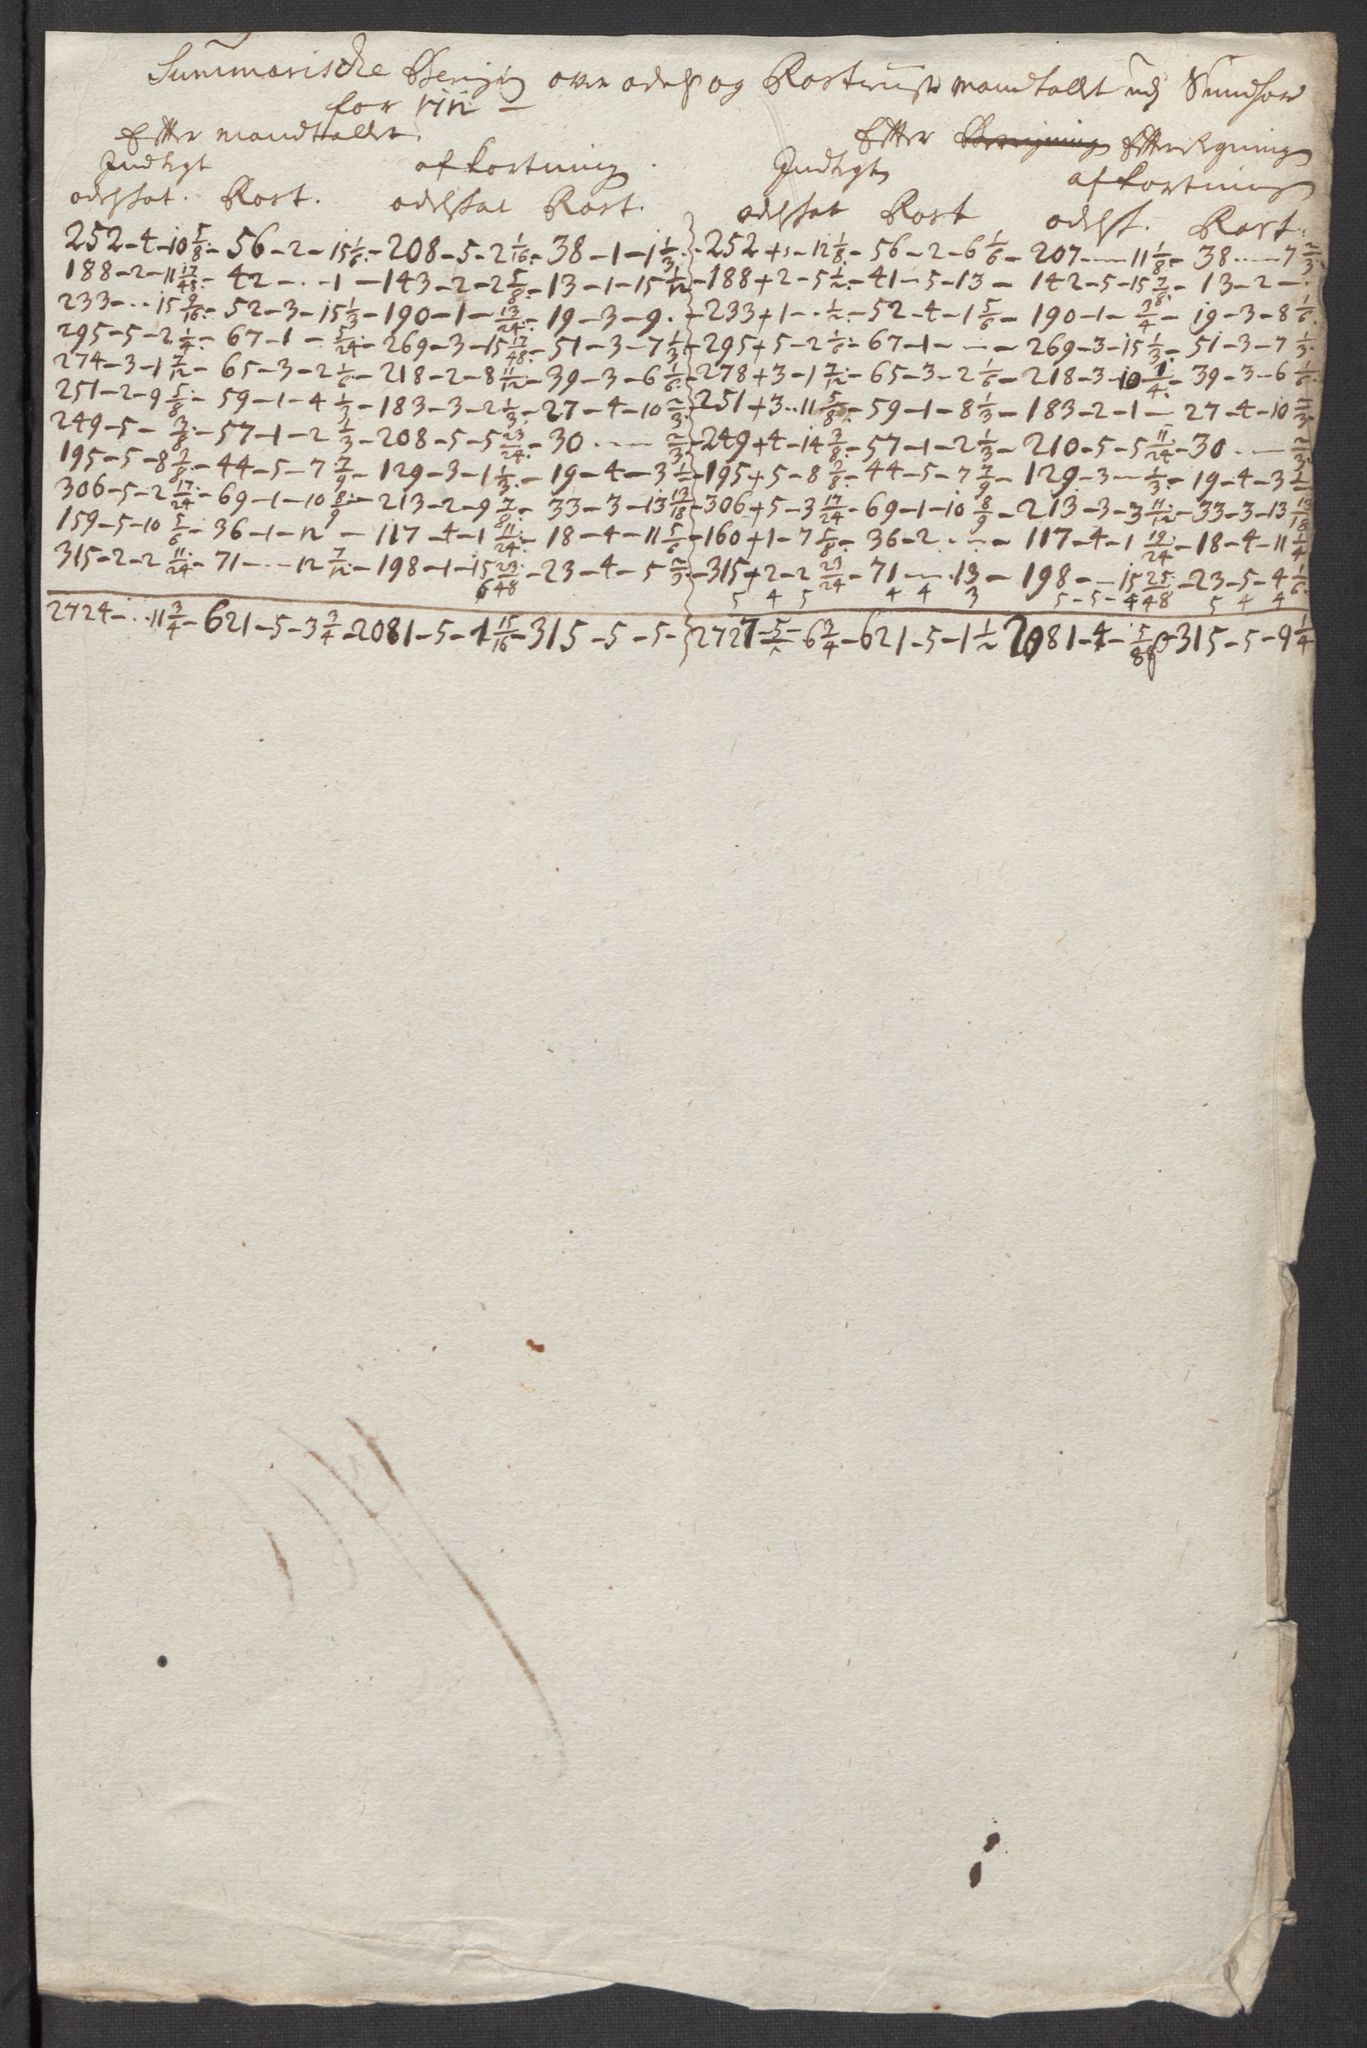 Summarische Beregn over odels og Rostieniste mandtallet udj Sundhor
for 1712 —
Efter mandtallet. Efter Efterregning
Indtegt afkortning. Indtegt afkortning
odelskat. Rost. odelskat Rost. odelskat Rost odelsk. Rost.
252-4-10 5/8 - 56-2-15 1/6 - 208-5-2 1/16 - 38-1-1 1/3 - 252+5-12 1/8 - 56-2-6 1/6 - 207-..-11 1/8 - 38-..-7 2/3
188-2-11 17/48 - 42-..-1 - 143-2-2 5/8 - 13-1-15 1/12 - 188+2-5 1/2 - 41-5-13 - 142-5-15 7/8 - 13-2-..
233-..-15 9/16 - 52-3-15 1/3 - 190-1-13/24 - 19-3-9 - 233+1-..1/2 - 52-4-1 5/6 - 190-1-3/4 - 19-3-8 1/6
295-5-2 1/4 - 67-1-5/24 - 269-3-15 17/48 - 51-3-7 1/3 - 295+5-2 1/6 - 67-1-.. - 269-3-15 1/3 - 51-3-7 1/3
274-3-1 7/12 - 65-3-2 1/6 - 218-2-8 11/12 - 39-3-6 1/6 - 278+3-1 7/12 - 65-3-2 1/6 - 218-3-10 1/4 - 39-3-6 1/6
251-2-9 5/8 - 59-1-4 1/3 - 183-3-2 1/3 - 27-4-10 2/3 - 251+3-11 5/8 - 59-1-8 1/3 - 183-2-1 - 27-4-10 2/3
249-5-3/8 - 57-1-2 1/3 - 208-5-5 23/24 - 30-..-2/3 - 249+4-14 3/8 - 57-1-2 1/3 - 210-5-5 11/24 - 30-..-2/3
195-5-8 7/8 - 44-5-7 7/9 - 129-3-1 1/3 - 19-4-3 1/2 - 195+5-8 7/8 - 44-5-7 7/9 - 129-3-1/3 - 19-4-3 1/2
306-5-2 17/24 - 69-1-10 8/9 - 213-2-9 7/8 - 33-3-13 13/18 - 306+5-3 17/24 - 69-1-10 8/9 - 213-3-3 11/12 - 33-3-13 13/18
159-5-10 5/6 - 36-1-12 - 117-4-1 11/24 - 18-4-11 5/6 - 160+1-7 5/8 - 36-2-.. - 117-4-1 19/24 - 18-4-11 1/4
315-2-2 11/24 - 71-..-12 7/12 - 198-1-15 23/48 - 23-4-5 2/3 - 315+2-2 23/24 - 71-..-13 - 198-..-15 25/48 - 23-5-4 1/6
6 5 4 5 4 4 3 5-5-4 5 4 4
2724-..-11 3/4 - 621-5-3 3/4 - 2081-5-1 15/16 - 315-5-5 - 2727-5-6 3/4 - 621-5-1 1/2 2081-4-5/8 - 315-5-9 1/4